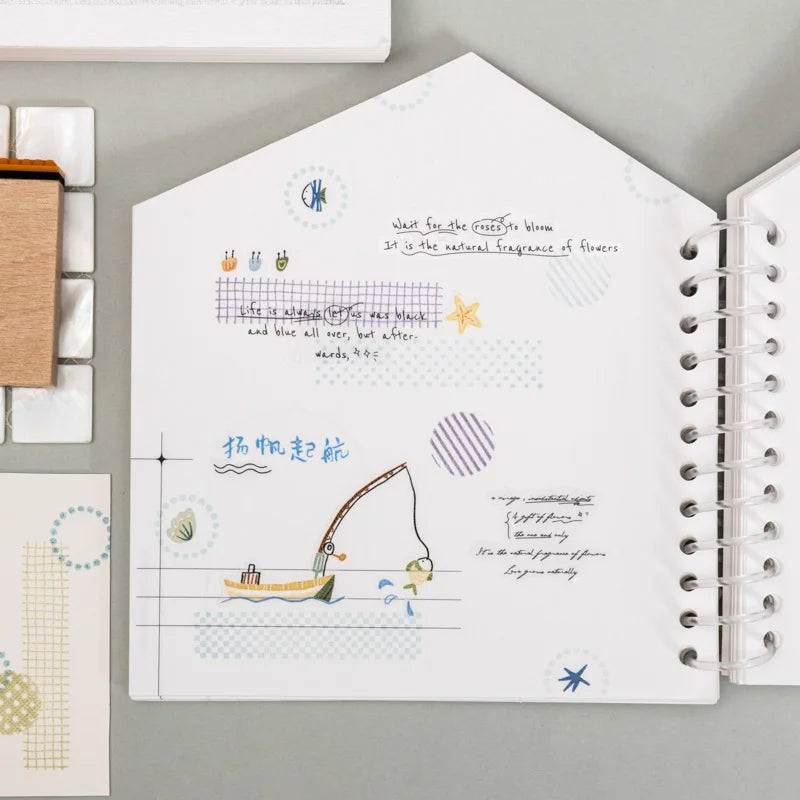 Wait for the roses to bloom
It is the natural fragrance of flowers
Life is always let us was black
and blue all over, but after-
wards,
扬帆起航
A gift of flowers
the one and only
It is the natural fragrance of flowers
Love grows naturally